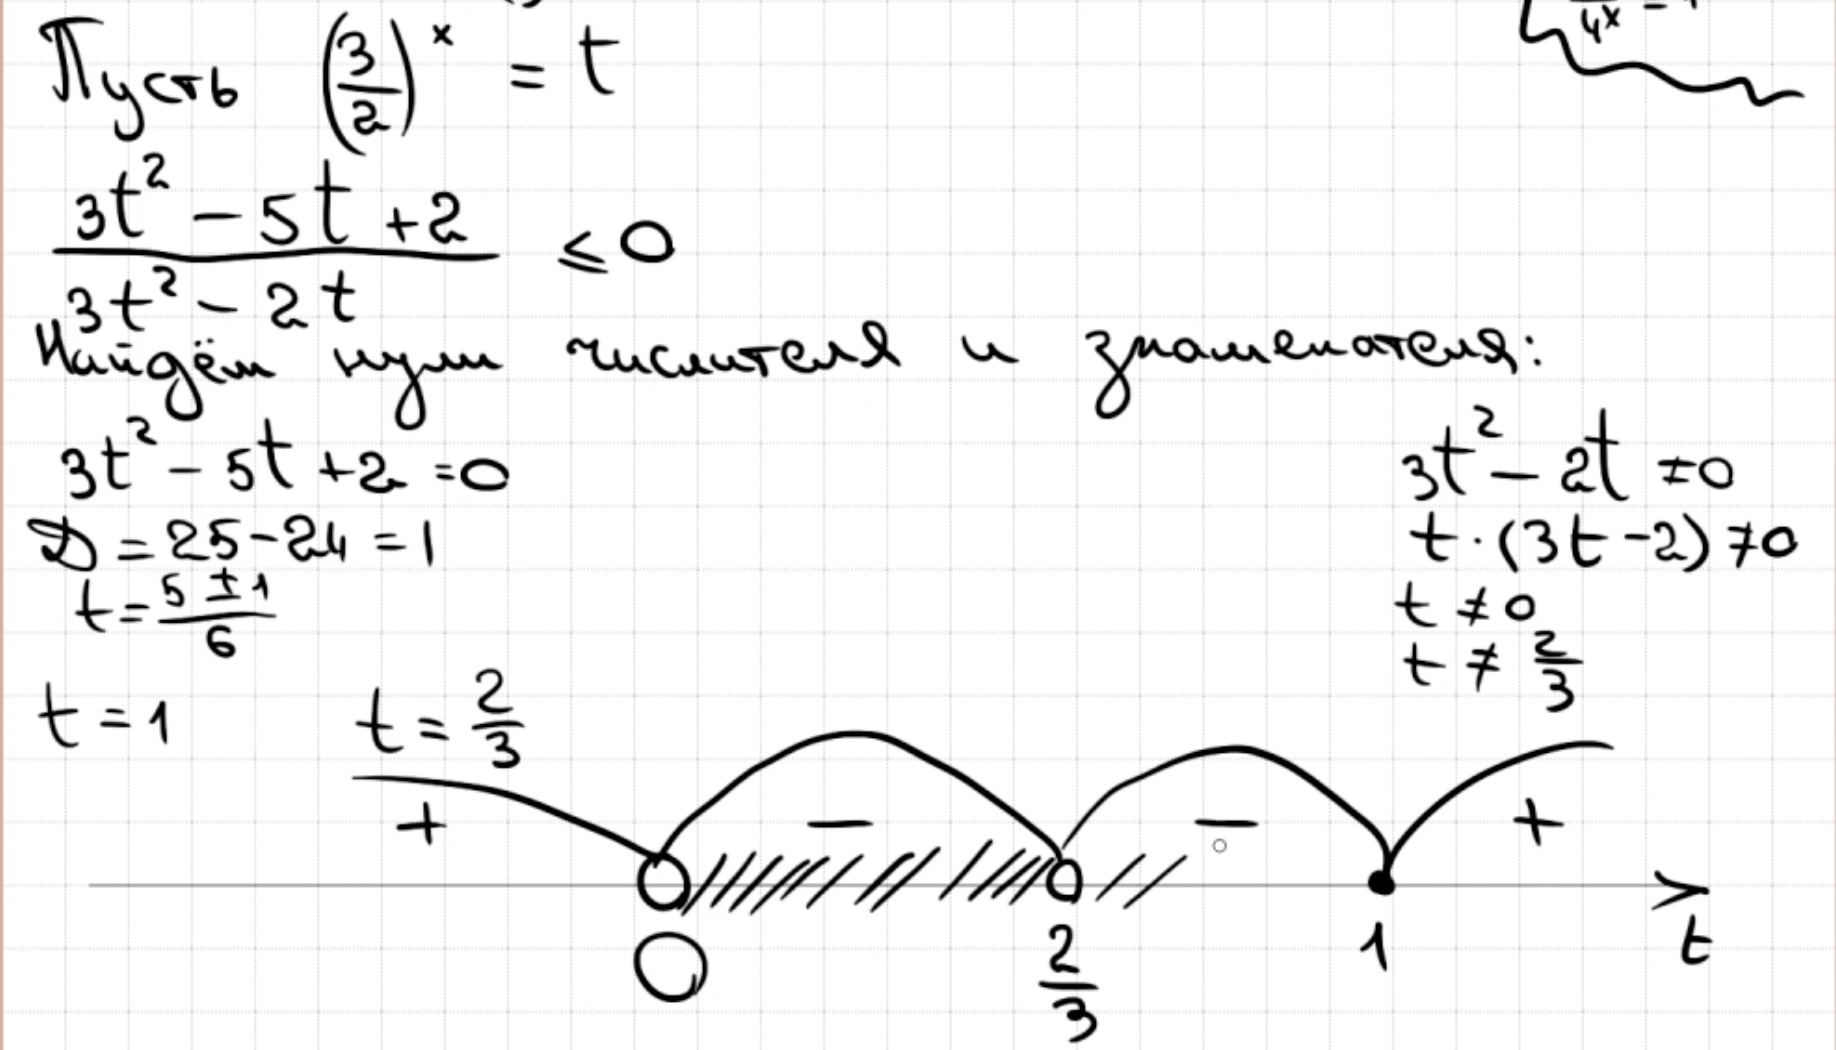 Пусть (3/2)^x = t
4^x =
3t² - 5t + 2 / 3t² - 2t ≤ 0
Найдём нули числителя и знаменателя:
3t² - 5t + 2 = 0
D = 25 - 24 = 1
t = 5 ± 1 / 6
t = 1 t = 2/3
3t² - 2t ≠ 0
t · (3t - 2) ≠ 0
t ≠ 0
t ≠ 2/3
+ − − +
0 2/3 1 t